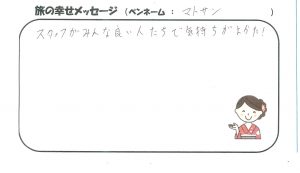 旅の幸せメッセージ（ペンネーム：マトサン）
スタッフがみんな良い人たちで気持ちがよかた！